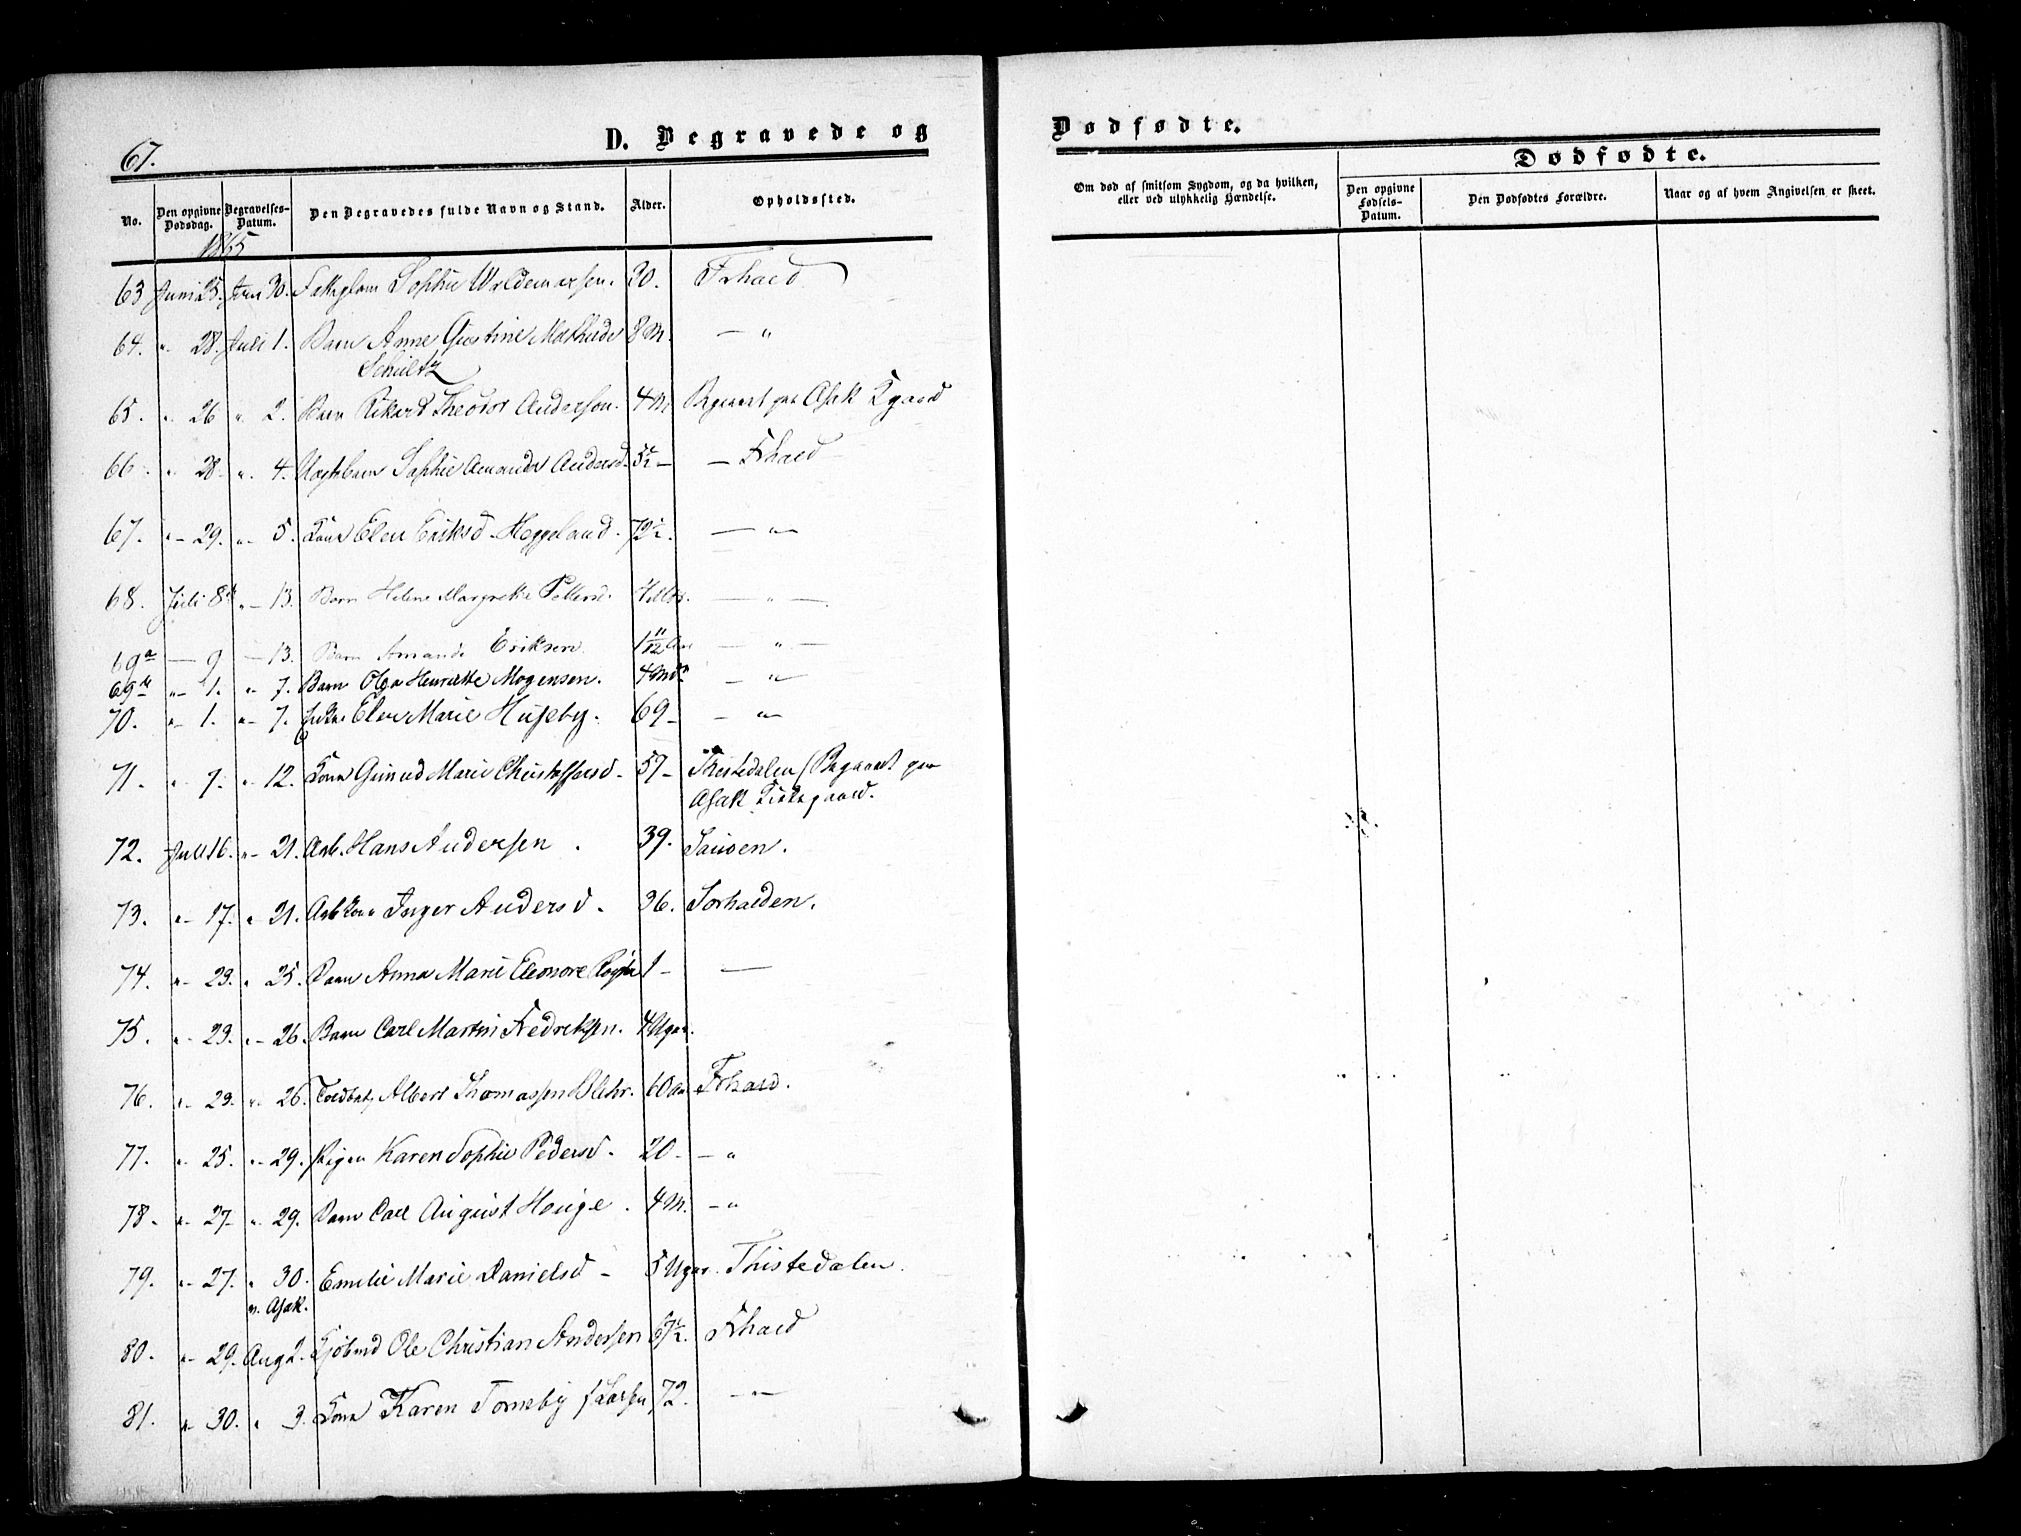 67.
D. Begravede og
No.
Den opgivne Dødsdag.
Begravelses-Datum.
Den Begravedes fulde Navn og Stand.
Alder.
Opholdssted.
1865
63 Juni 25. Juni 30. Sophie Woldemarsen. 30. Frhald
64. " 28. Juli 1. Barn Anne Gustine Mathilde 8 M. — "
Schultz
65. " 26 " 2. Barn Rikard Theodor Andersen. 4 M. Begravet paa Asak
66. " 28. " 4. Sophie Amanda Andersd. 5½ — — Frhald
67. " — 29. " — 5. Kone Elen Eriksd. Heggeland. 72½. — " —
68. Juli 8de " — 13. Barn Helene Margrethe Petters. 4 Mdr. — " —
69a — 9 — 13. Barn Amanda Eriksen 1 11/12 Aar — " —
69b " — 1. " — 7. Barn Olga Henriette Mogensen. 4 Mdr — " —
70. " — 1. " — 7. Elen Marie Huseby. 69 — — " —
71. " — 7. " — 12. Kone Gunild Marie Christoffersd — 57 — Thistedalen / Begravet paa
Asak Kirkegaard.
72. Juli 16. " — 21. Arb. Hans Andersen . 39. Sauøen.
73. " — 17. " 21. Arb. Kone Inger Andersd . 36. Torhalden.
74. " — 23. " 25. Barn Anna Marie Eleonore 1 — —
75. " — 23. " — 26. Barn Carl Martin Fredriksen. 4 Uger.
76. " — 23. " — 26. Albert Thomassen Blehr. 60 aar Frhald.
77. " 25. " — 29. Pigen Karen Sophie Pedersd. 20 — — "
78. " — 27 — " 29. Barn Carl August Houge . 4 M. — "
79. " — 27. " 30. Emilie Marie Danielsd — 5 Uger. Thistedalen.
v. Asak.
80. " — 29. Aug 2. Kjøbmd Ole Christian Andersen 67½. Frhald
81. " 30. " 3. Kone Karen Torneby f Larsen 72. — " —
Dødfødte.
Om død af smitsom Sygdom, og da hvilken, eller ved ulykkelig Hændelse.
Dødfødte.
Den opgivne Fødsels-Datum.
Den Dødfødtes Forældre.
Naar og af hvem Angivelsen er skeet.